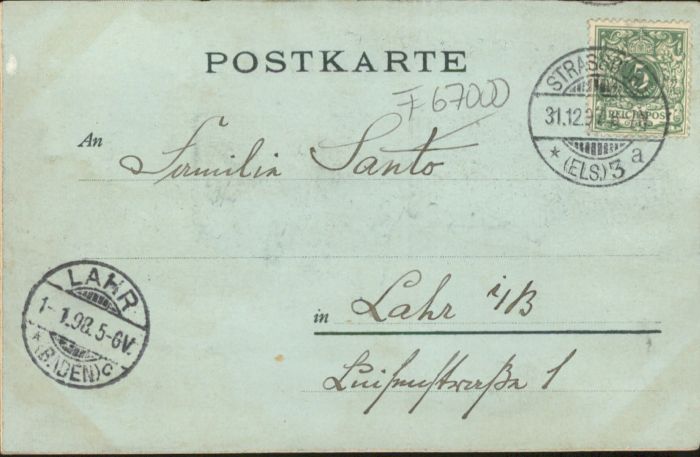 POSTKARTE
F 67000
STRASSB
31.12.97
* (ELS.) 3 a
5
REICHSPOST
An Familia Santo
LAHR
1-1.98.5-6V.
*(BADEN)c
in Lahr i/B
Luisenstraße 1